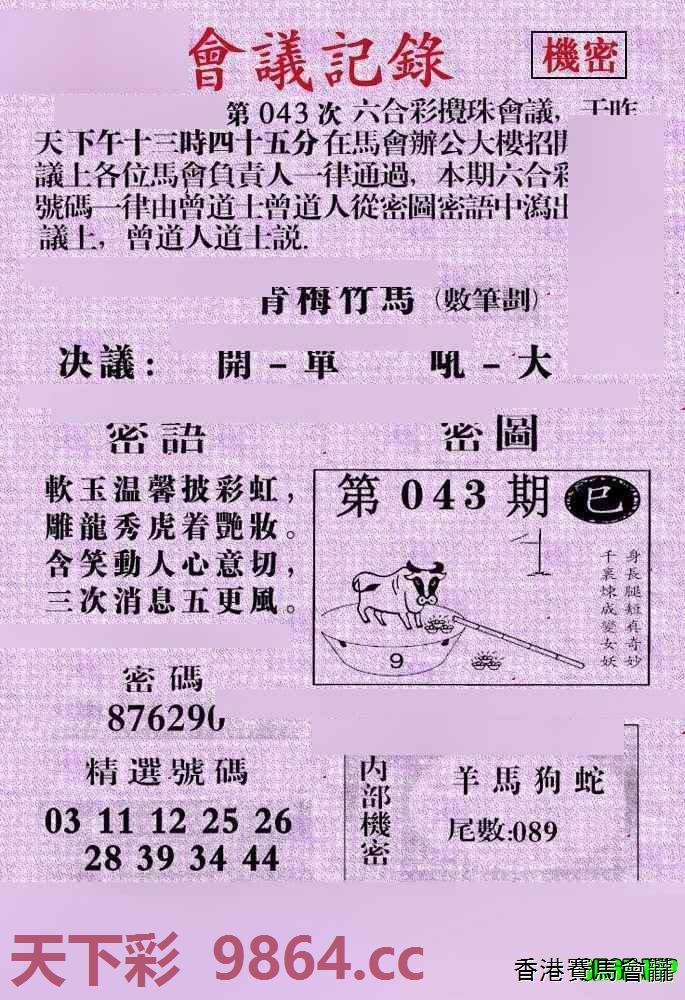 會議記錄
機密
第 043 次 六合彩攪珠會議，于昨
天下午十三時四十五分在馬會辦公大樓招開
議上各位馬會負責人一律通過，本期六合彩
號碼一律由曾道士曾道人從密圖密語中瀉出
議上，曾道人道士説.
青梅竹馬（數筆劃）
决議：開－單 吼－大
密語
軟玉温馨披彩虹，
雕龍秀虎着艷妝。
含笑動人心意切，
三次消息五更風。
密圖
第 043 期 巳
身長腿短真奇妙
千裏煉成變女妖
9
密碼
87629
精選號碼
03 11 12 25 26
28 39 34 44
内部機密
羊馬狗蛇
尾數:089
天下彩 9864.cc
香港賽馬會